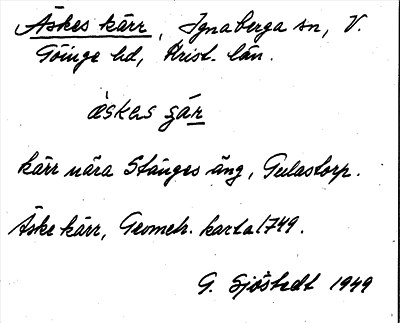 Äskes kärr, Ignaberga sn, V.
Göinge hd, Krist. län.
æskəs ɟár
kärr nära Stånges äng, Gulastorp.
Äske kärr, Geometr. karta 1749.
G. Sjöstedt 1949